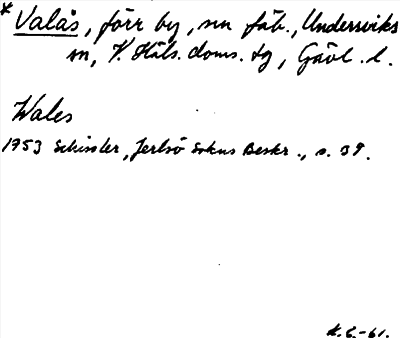 * Valås, förr by, nu fäb., Undersviks
sn, V. Häls. doms. tg, Gävl. l.
Wales
1953 Schissler, Jerlsö Sokns Beskr., s. 39.
K.C.-61.